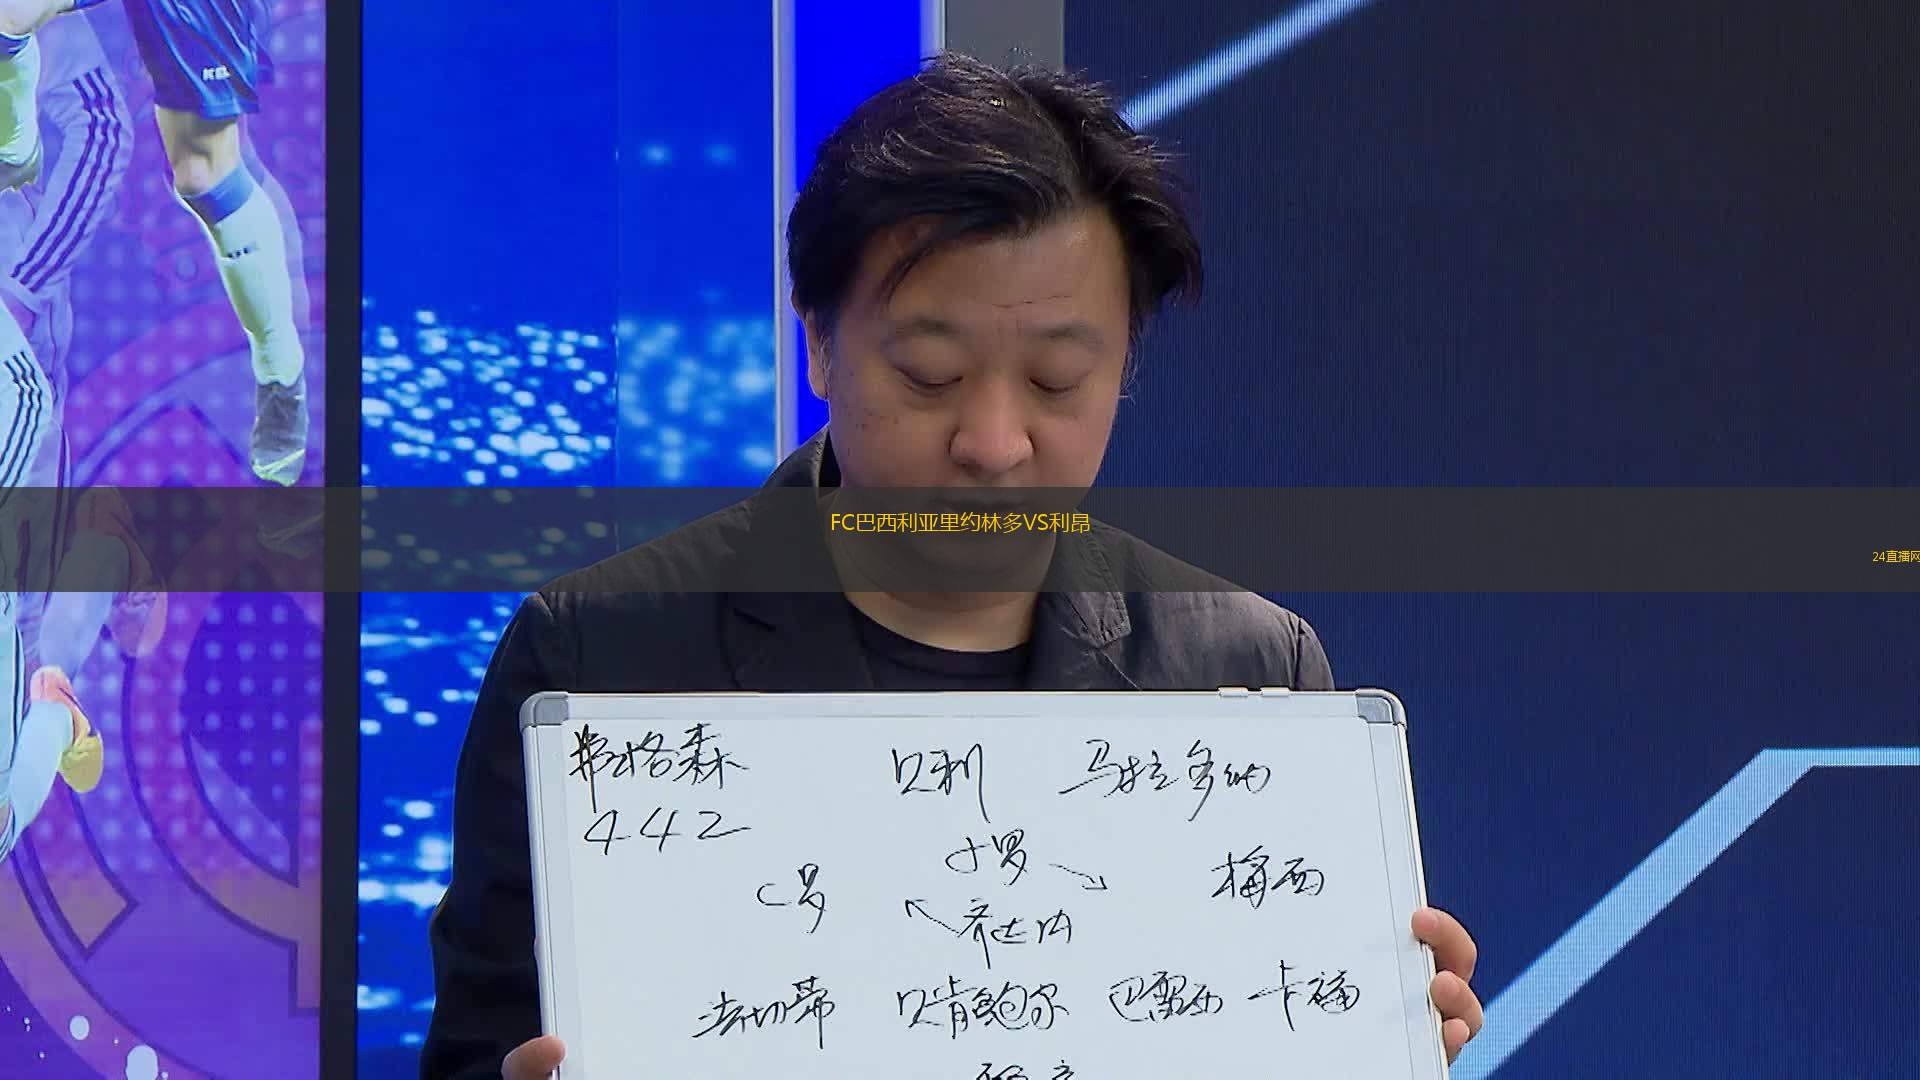 KEL
FC巴西利亚里约林多VS利昂
24直播网
弗格森
442
贝利 马拉多纳
小罗
C罗 梅西
齐达内
法切蒂 贝肯鲍尔 巴雷西 卡福